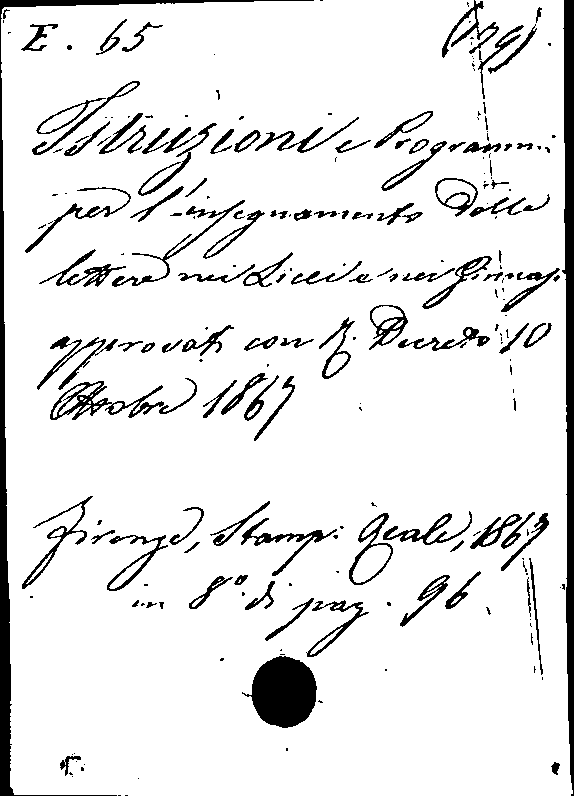 E. 65 (79)
Istruzioni e Programmi
per l'insegnamento delle
lettere nei Licei e nei Ginnasi
approvati con R. Decreto 10
Ottobre 1867
Firenze, Stamp: Reale, 1867
in 8.° di pag. 96